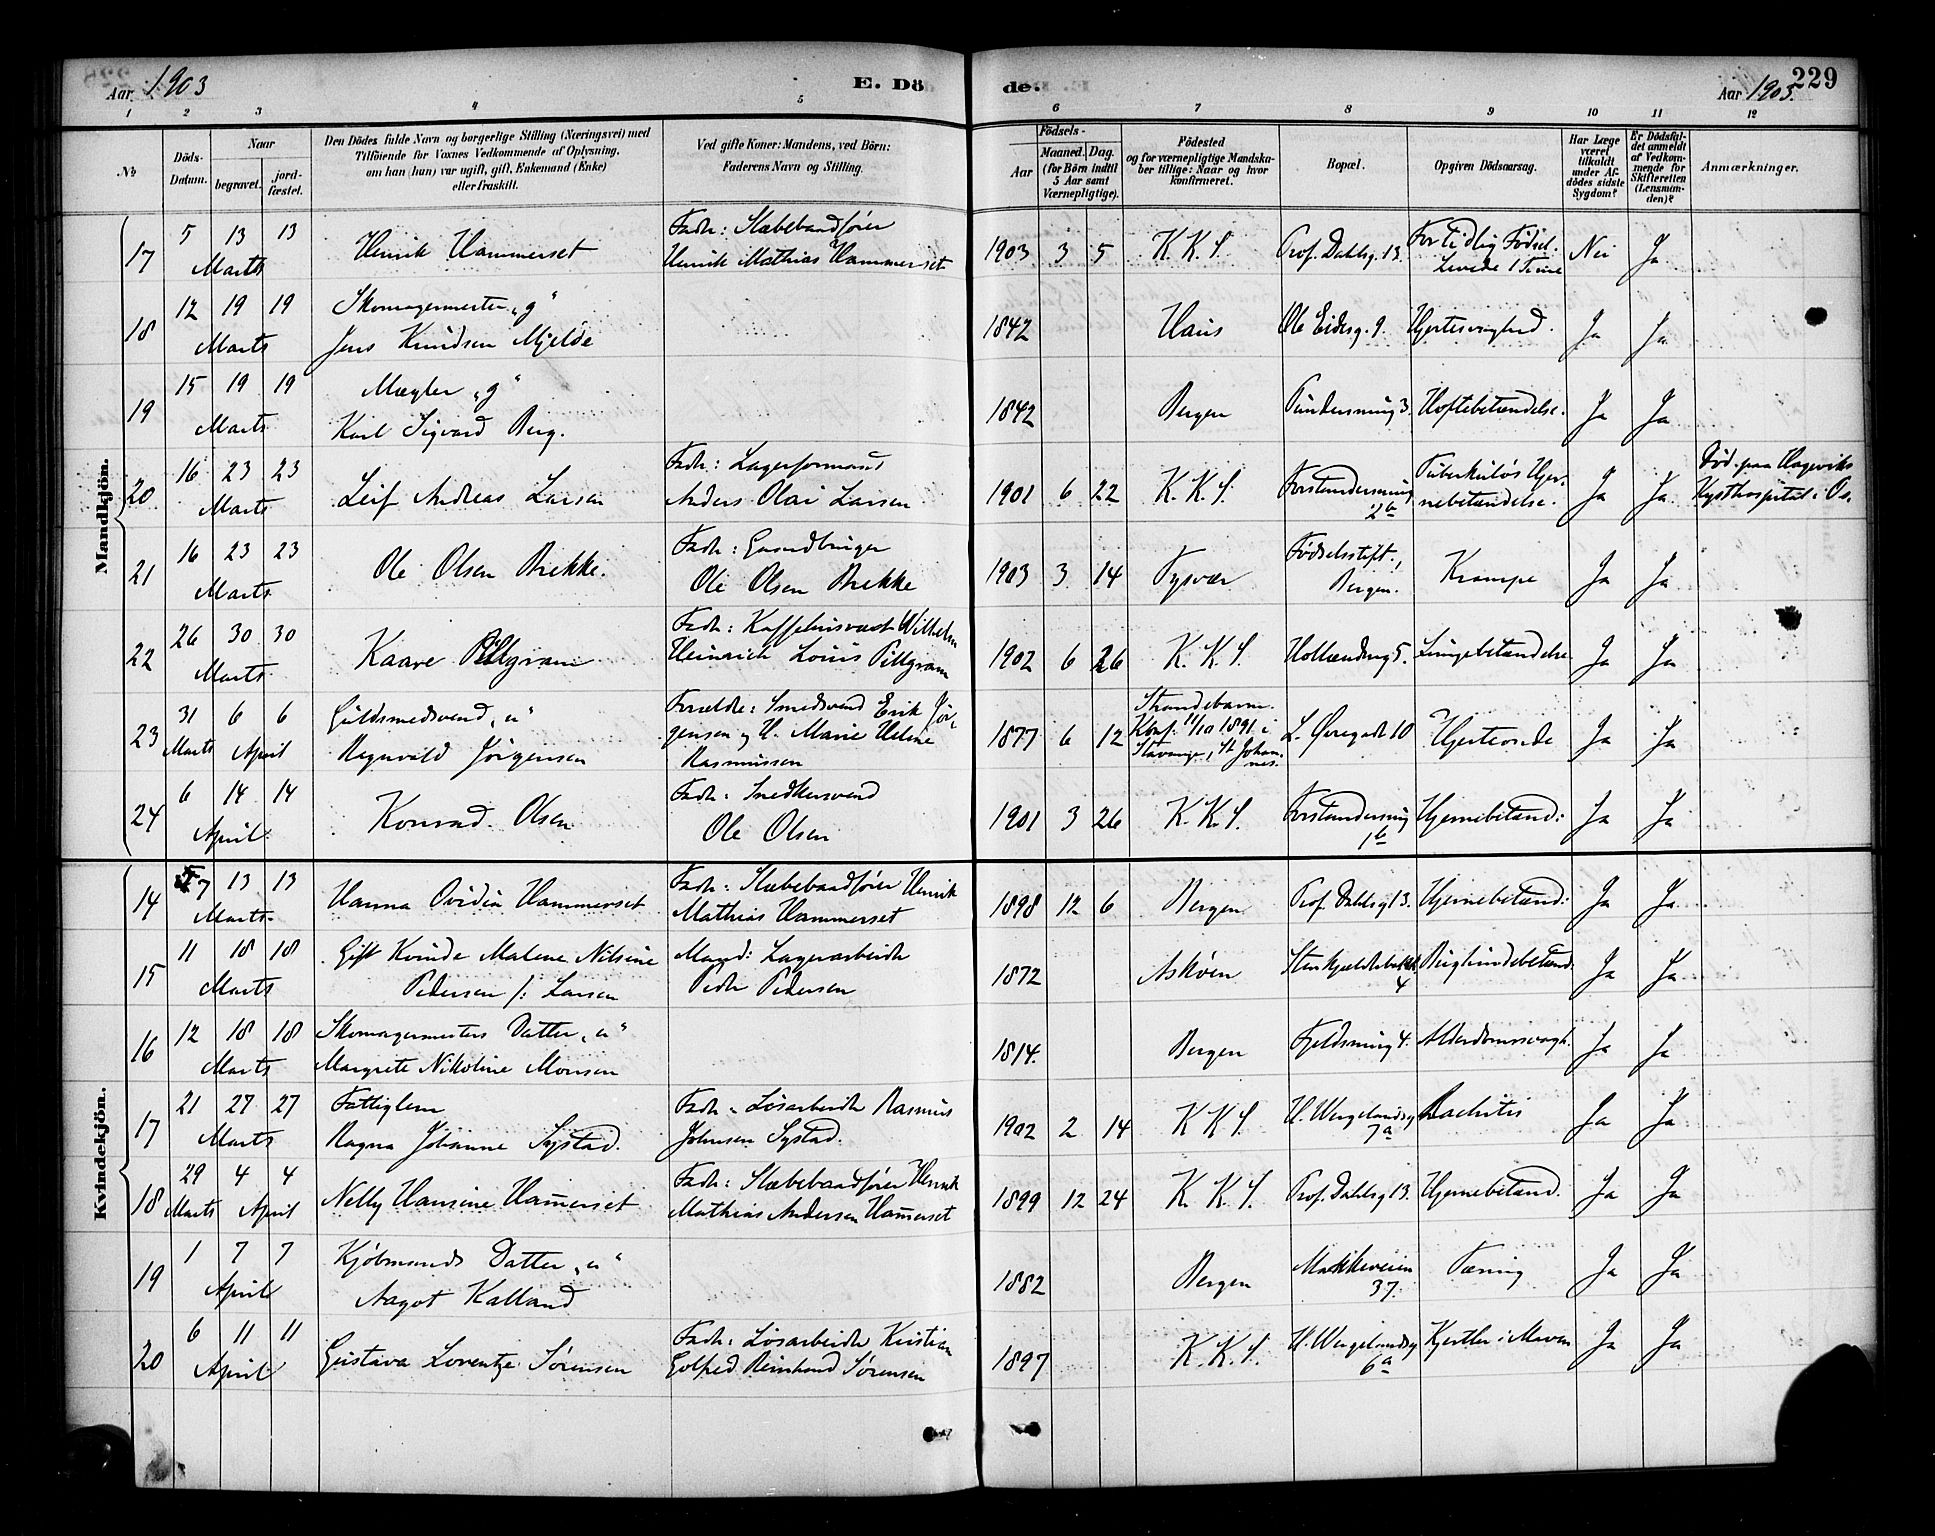 Aar 1903 E. Döde. Aar 1903. 229
1 2 3 4 5 6 7 8 9 10 11 12
№
Döds-Datum.
Naar
begravet.
jord-fæstet.
Den Dödes fulde Navn og borgerlige Stilling (Næringsvei) med
Tilföiende for Voxnes Vedkommende af Oplysning,
om han (hun) var ugift, gift, Enkemand (Enke)
eller fraskilt.
Ved gifte Koner: Mandens, ved Börn:
Faderens Navn og Stilling.
Födsels-
Aar
Maaned. Dag.
(for Börn indtil
5 Aar samt
Værnepligtige).
Födested
og for værnepligtige Mandska-
ber tillige: Naar og hvor
konfirmeret.
Bopæl.
Opgiven Dödsaarsag.
Har Læge
været
tilkaldt
under Af-
dödes sidste
Sygdom?
Er Dödsfal-
det anmeldt
af Vedkom-
mende for
Skifteretten
(Lensman-
den)?
Anmærkninger.
Mandkjön.
17 5 13 13 Marts Henrik Hammerset Fader: Slæbebaadfører
Henrik Mathias Hammerset 1903 3 5 K. K. S. Prof. Dahlsg. 13. For tidlig Födsel.
Levede 1 Time Nei Ja
18 12 19 19 Marts Skomagermester "g"
Jens Knudsen Mjelde 1842 Haus Ole Eidesg. 9. Hjertesvaghed. Ja Ja
19 15 19 19 Marts Mægler "g"
Karl Sigvard Berg. 1842 Bergen 3. Hoftebetændelse. Ja Ja
20 16 23 23 Marts Leif Andreas Larsen Fader: Lagerformand
Anders Olai Larsen 1901 6 22 K. K. S. Forstandersmug
2b Tuberkuløs Hjer-
nebetændelse. Ja Ja Död paa Hageviks
Kysthospital i Os.
21 16 23 23 Marts Ole Olsen Brekke. Fader: Gaardbruger
Ole Olsen Brekke 1903 3 14 Tysvær Födselsstift.,
Bergen. Krampe Ja Ja
22 26 30 30 Marts Kaare Pillgram Fader: Kaffehusvært Wilhelm
Heinrich Louis Pillgram 1902 6 26 K. K. S. Hollænderg 5. Lungebetændelse Ja Ja
23 31 Marts 6 6 April Guldsmedsvend "u"
Ragnvald Jörgensen Forældre: Smedsvend Erik Jör-
gensen og H. Marie Helene
Rasmussen 1877 6 12 Strandebarm.
Konf. 11/10 1891 i
Stavanger, St Johan-
nes. L. Øvregade 10 Hjerteonde Ja Ja
24 6 14 14 April Konrad Olsen Fader: Snedkersvend
Ole Olsen 1901 3 26 K. K. S. Forstandersmug
1b Hjernebetænd: Ja Ja
Kvindekjön.
14 7 13 13 Marts Hanna Ovidia Hammerset Fader: Slæbebaadfører Henrik
Mathias Hammerset 1898 12 6 Bergen Prof. Dahlsg 13. Hjernebetænd: Ja Ja
15 11 18 18 Marts Gift Kvinde Malene Nilsine
Pedersen f: Larsen Mand: Lagerarbeider
Peder Pedersen 1872 Askøen Stenkjelderbakken
4 Bughindebetænd. Ja Ja
16 12 18 18 Marts Skomagermesters Datter "u"
Margrete Nikoline Monsen 1814. Bergen Fjeldsmug 4. Alderdomssvagh. Ja Ja
17 21 27 27 Marts Fattiglem
Ragna Johanne Systad. Fader: Løsarbeider Rasmus
Johnsen Systad. 1902 2 14 K K S. H. Wergelandsg
7a Rachitis Ja Ja
18 29 Marts 4 4 April Nelly Hansine Hamerset Fader: Slæbebaadfører Henrik
Mathias Andersen Hamerset 1899 12 24 K. K. S. Prof. Dahlsg 13. Hjernebetænd. Ja Ja
19 1 7 7 April Kjöbmands Datter "u"
Aagot Kalland 1882 Bergen Møhlkeveien
37. Tæring Ja Ja
20 6 11 11 April Gustava Lorentze Sörensen Fader: Løsarbeider Kristian
Golfred Reinhard Sörensen 1897 K. K. S. H. Wergelandsg
6a Kjertler i Maven Ja Ja